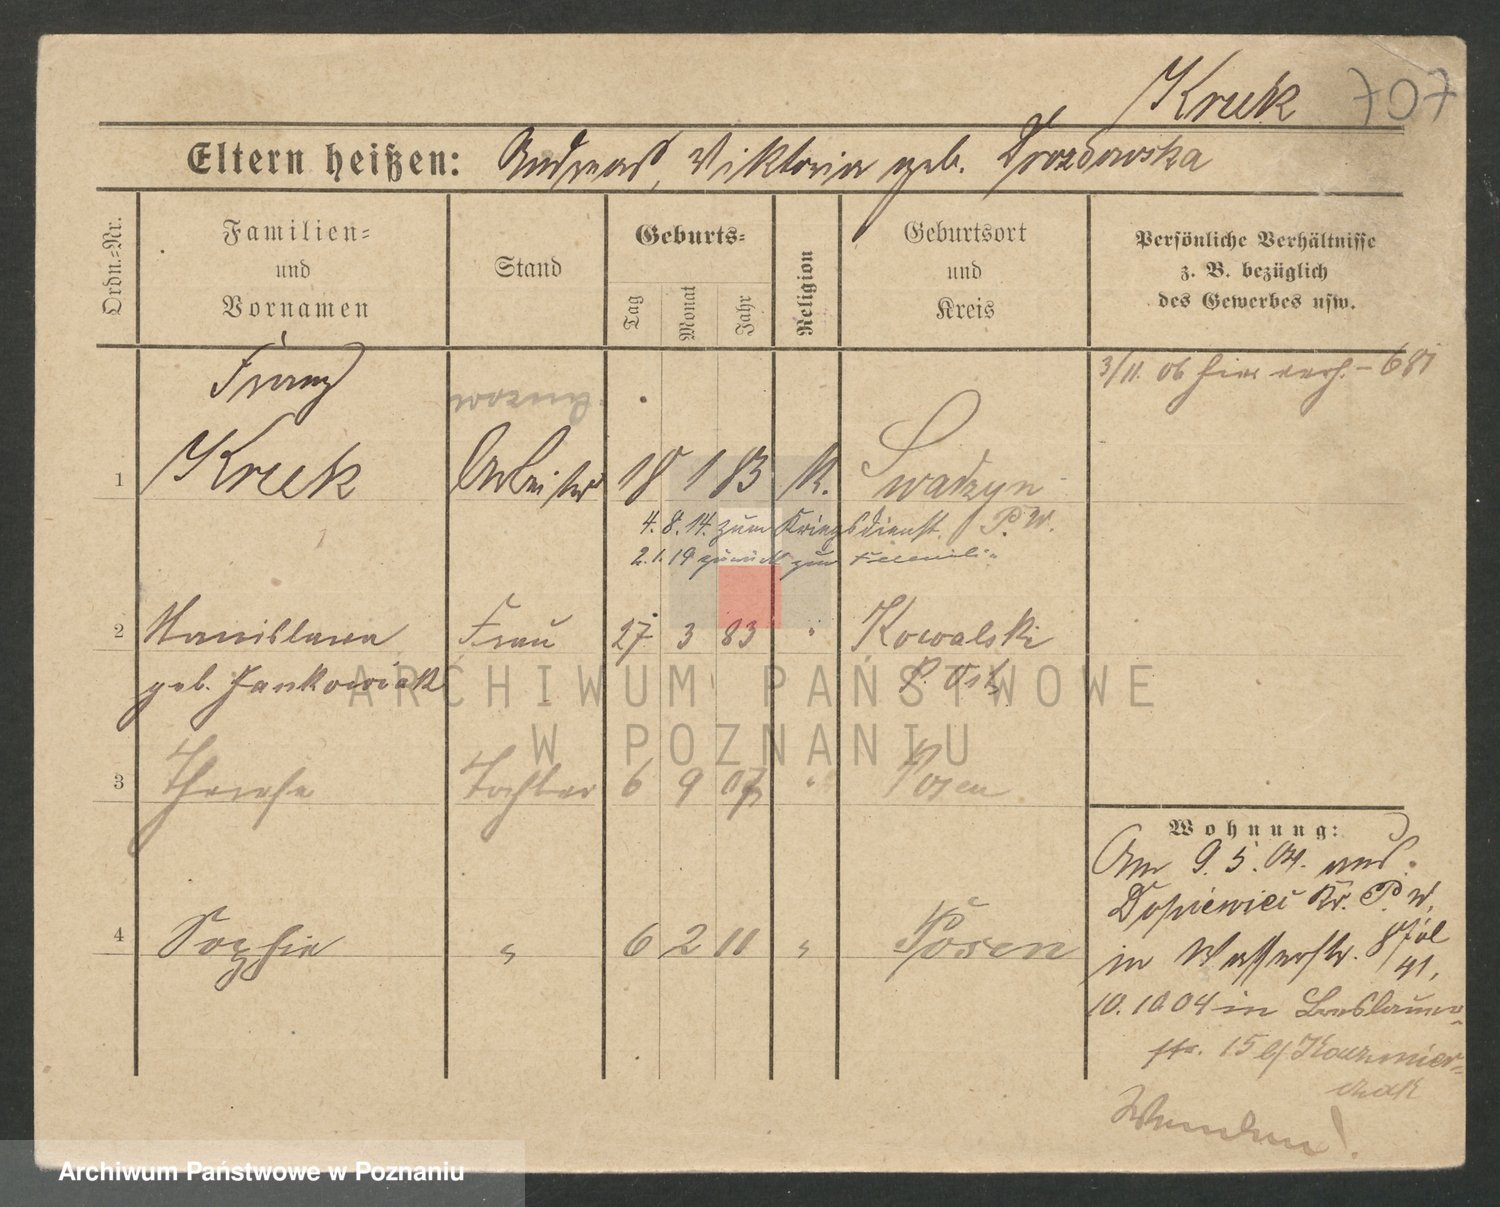 Kruk 707
Eltern heißen: Andreas, Viktoria geb. Drozdowska
Ordn.-Nr.
Familien-
und
Vornamen
Stand
Geburts-
Tag
Monat
Jahr
Religion
Geburtsort
und
Kreis
Persönliche Verhältnisse
z. B. bezüglich
des Gewerbes usw.
Franz
3/11. ob hier verh. – 681
1 Kruk Arbeiter 18 1 83 K. Swadzyn
4. 8. 14. zum Kriegsdienst P. W.
2. 1. 19 zurück zur
2 Stanislawa Frau 27 3 83 " Kowalski
geb. Jankowiak P. Ost
3 Therese Tochter 6 9 07 " Posen
4 Sophie " 6 2 11 " Posen
Wohnung:
Am 9. 5. 04. aus
Dopiewiec Kr. P. W.
in Wasserstr. 8/
41,
10. 10 04 in Breslauer-
str. 15 b/ Kazmier-
czak
Wenden!
ARCHIWUM PAŃSTWOWE
W POZNANIU
Archiwum Państwowe w Poznaniu